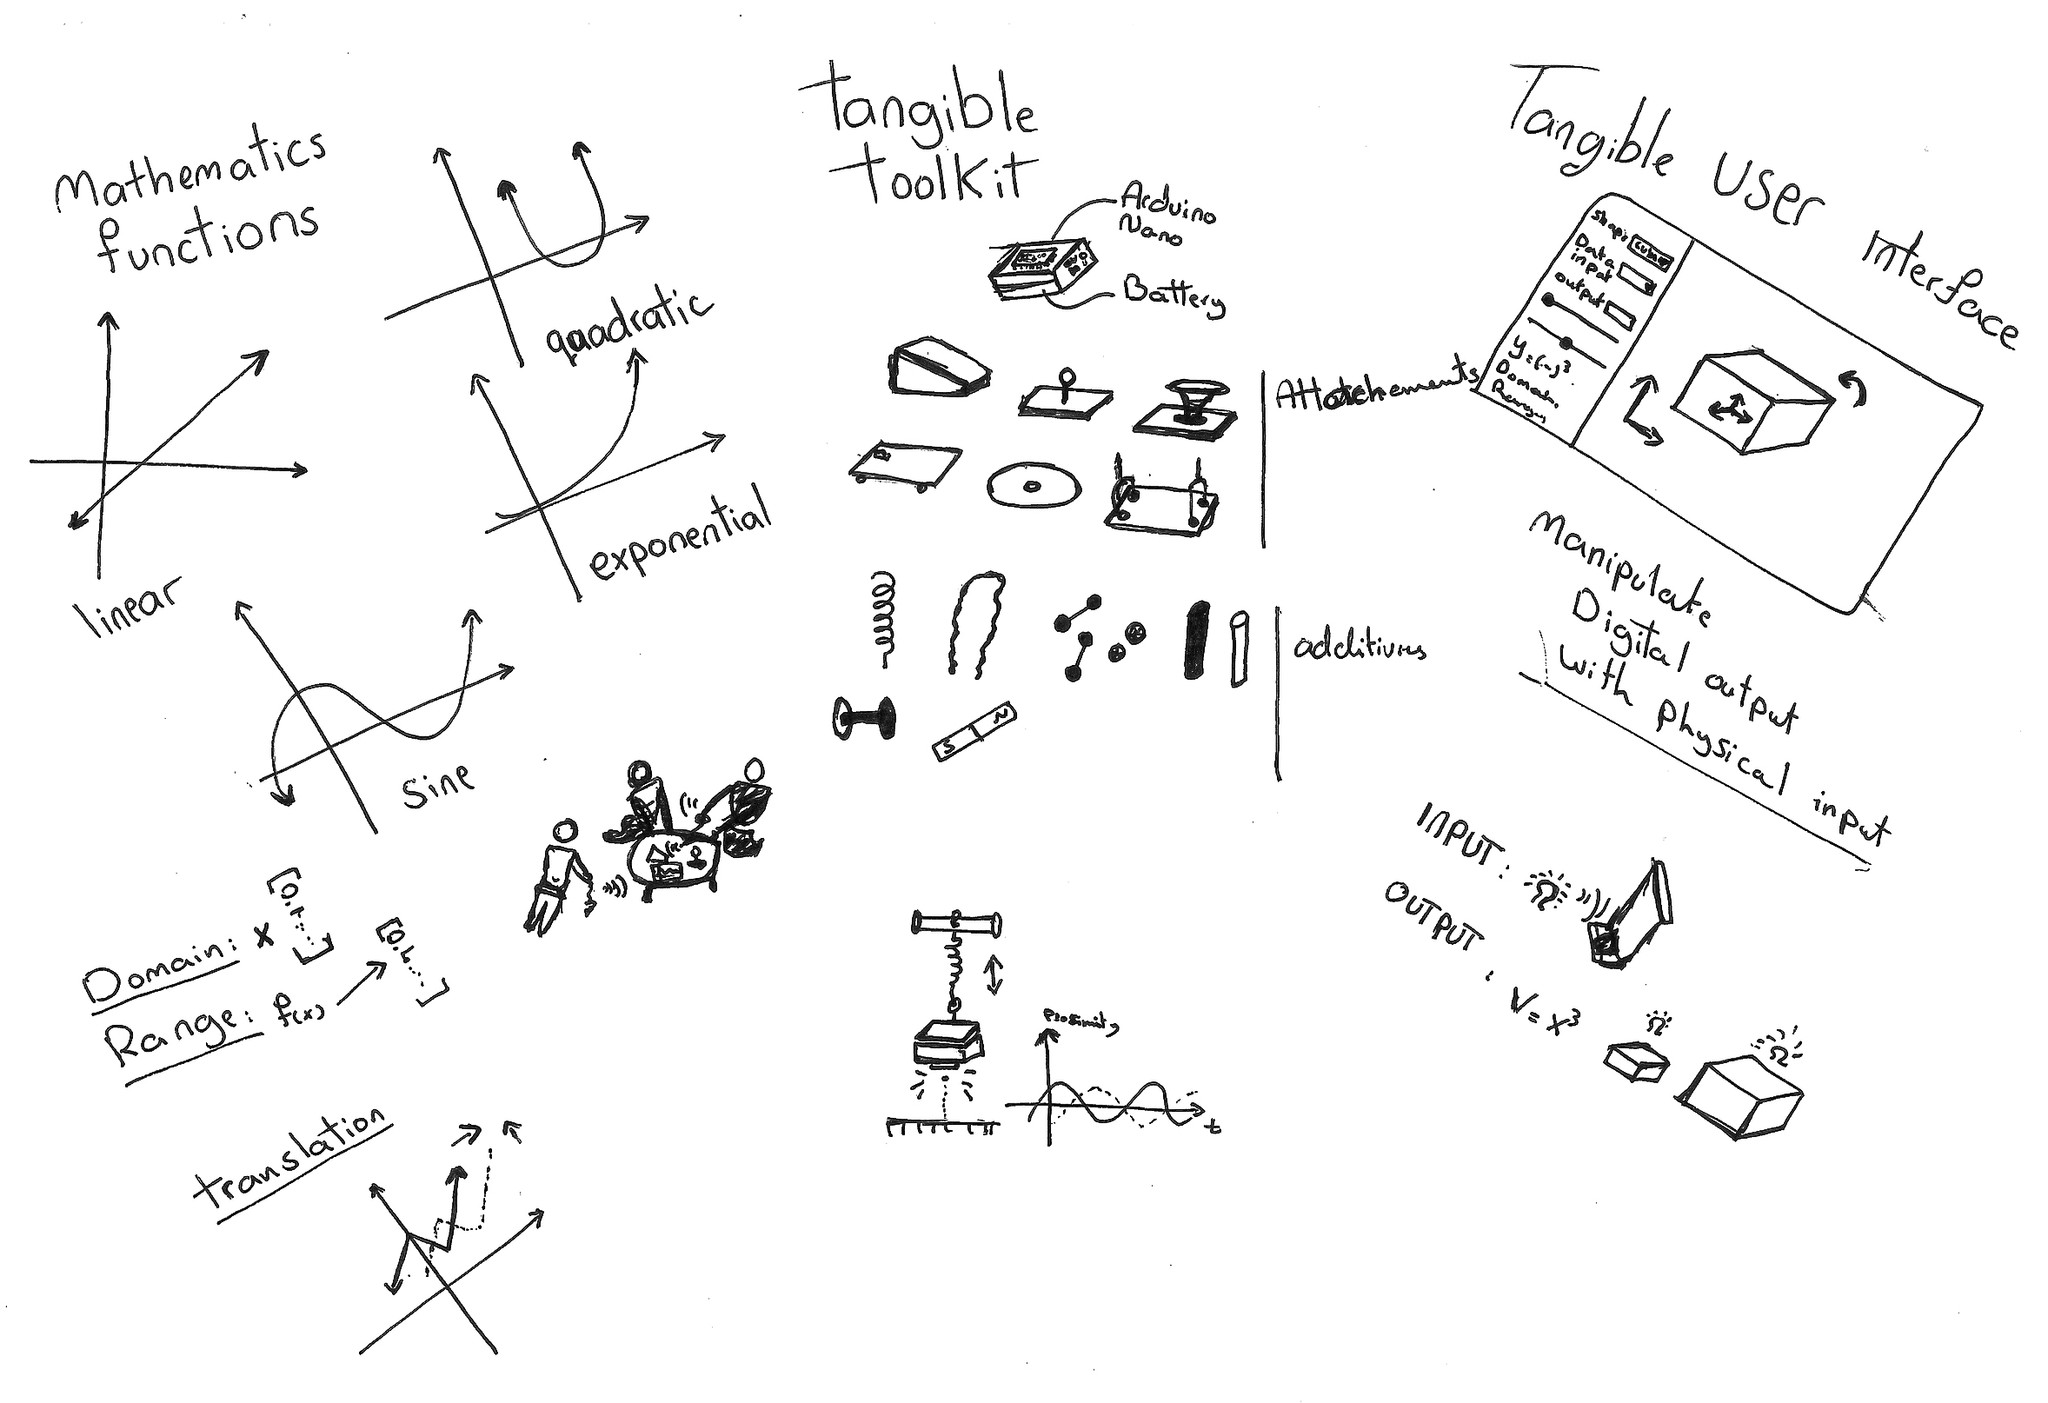 Mathematics
functions
linear
quadratic
exponential
sine
Domain: x [0.1.....]
Range: f(x) [0.6.....]
translation
Tangible
Toolkit
Arduino
Nano
Battery
Attachements
additives
S N
Proximity
t
Tangible User Interface
Shape: cube
Data
input
output
Domain
Manipulate
Digital output
with physical input
INPUT:
OUTPUT:
V = x³